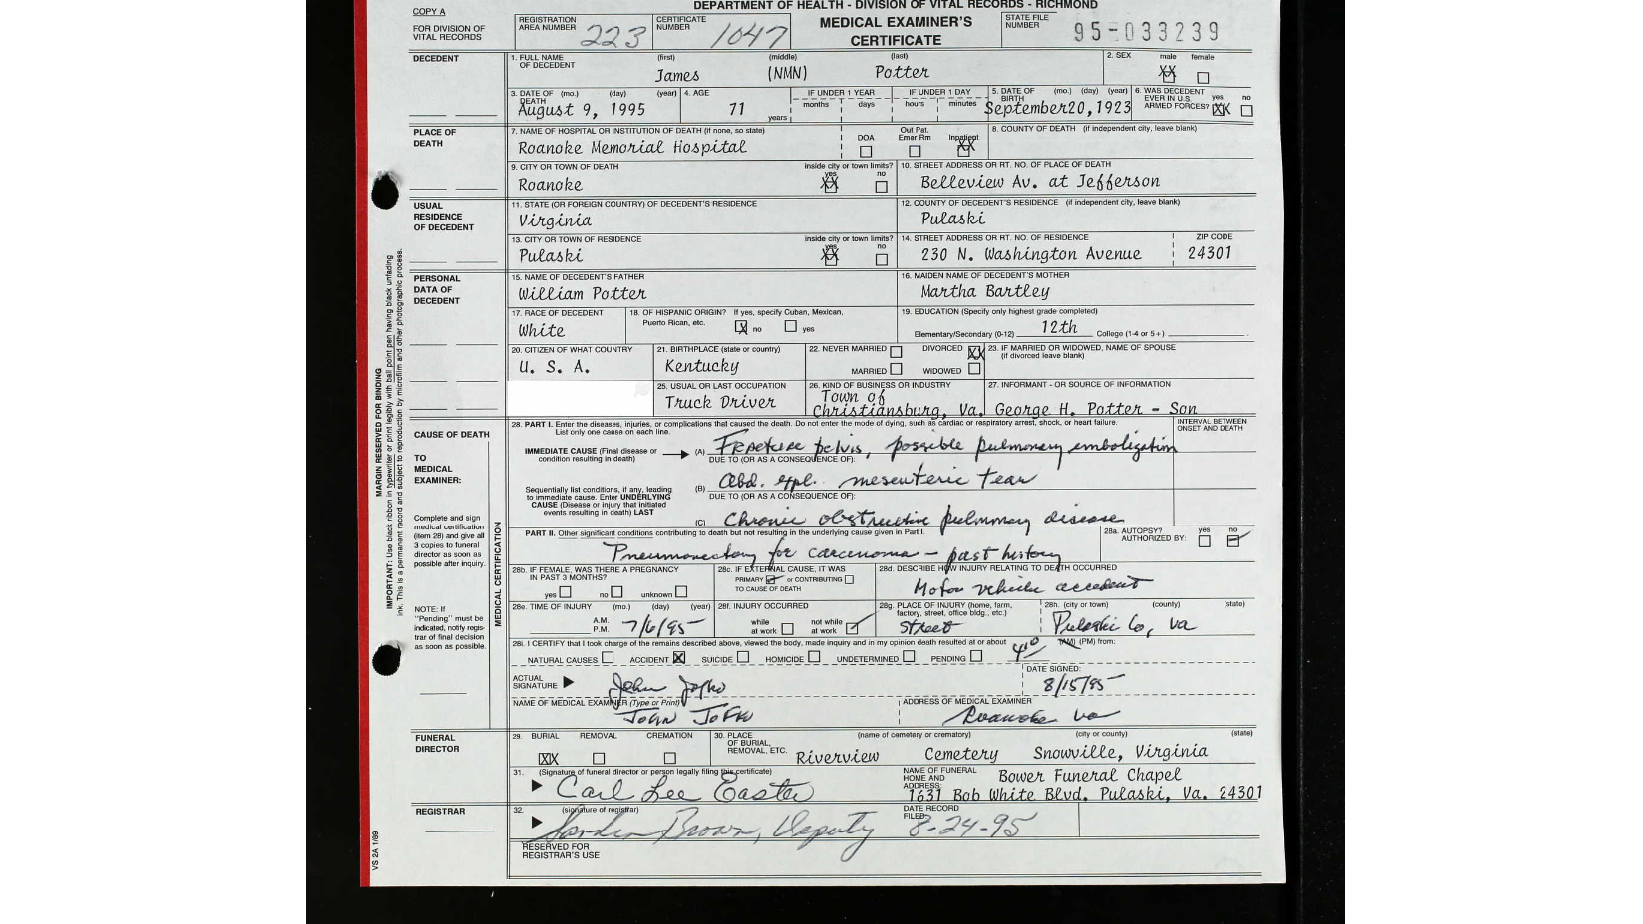 DEPARTMENT OF HEALTH - DIVISION OF VITAL RECORDS - RICHMOND
COPY A
FOR DIVISION OF VITAL RECORDS
REGISTRATION AREA NUMBER 223
CERTIFICATE NUMBER 1047
MEDICAL EXAMINER'S CERTIFICATE
STATE FILE NUMBER 95-033239
DECEDENT
1. FULL NAME OF DECEDENT (first) (middle) (last)
James (NMN) Potter
2. SEX male female
XX
3. DATE OF DEATH (mo.) (day) (year)
August 9, 1995
4. AGE 71 years
IF UNDER 1 YEAR months days
IF UNDER 1 DAY hours minutes
5. DATE OF BIRTH (mo.) (day) (year)
September 20, 1923
6. WAS DECEDENT EVER IN U.S. ARMED FORCES? yes no
XX
PLACE OF DEATH
7. NAME OF HOSPITAL OR INSTITUTION OF DEATH (if none, so state)
Roanoke Memorial Hospital
DOA Out Pat. Emer Rm Inpatient
XX
8. COUNTY OF DEATH (if independent city, leave blank)
9. CITY OR TOWN OF DEATH
Roanoke
inside city or town limits? yes no
XX
10. STREET ADDRESS OR RT. NO. OF PLACE OF DEATH
Belleview Av. at Jefferson
USUAL RESIDENCE OF DECEDENT
11. STATE (OR FOREIGN COUNTRY) OF DECEDENT'S RESIDENCE
Virginia
12. COUNTY OF DECEDENT'S RESIDENCE (if independent city, leave blank)
Pulaski
13. CITY OR TOWN OF RESIDENCE
Pulaski
inside city or town limits? yes no
XX
14. STREET ADDRESS OR RT. NO. OF RESIDENCE
230 N. Washington Avenue
ZIP CODE
24301
PERSONAL DATA OF DECEDENT
15. NAME OF DECEDENT'S FATHER
William Potter
16. MAIDEN NAME OF DECEDENT'S MOTHER
Martha Bartley
17. RACE OF DECEDENT
White
18. OF HISPANIC ORIGIN? If yes, specify Cuban, Mexican, Puerto Rican, etc.
X no yes
19. EDUCATION (Specify only highest grade completed)
Elementary/Secondary (0-12) 12th College (1-4 or 5+)
20. CITIZEN OF WHAT COUNTRY
U. S. A.
21. BIRTHPLACE (state or country)
Kentucky
22. NEVER MARRIED DIVORCED XX
MARRIED WIDOWED
23. IF MARRIED OR WIDOWED, NAME OF SPOUSE (if divorced leave blank)
25. USUAL OR LAST OCCUPATION
Truck Driver
26. KIND OF BUSINESS OR INDUSTRY
Town of
Christiansburg, Va.
27. INFORMANT - OR SOURCE OF INFORMATION
George H. Potter - Son
CAUSE OF DEATH
TO MEDICAL EXAMINER:
Complete and sign medical certification (item 28) and give all 3 copies to funeral director as soon as possible after inquiry.
NOTE: If "Pending" must be indicated, notify registrar of final decision as soon as possible.
MEDICAL CERTIFICATION
28. PART I. Enter the diseases, injuries, or complications that caused the death. Do not enter the mode of dying, such as cardiac or respiratory arrest, shock, or heart failure.
List only one cause on each line.
INTERVAL BETWEEN ONSET AND DEATH
IMMEDIATE CAUSE (Final disease or condition resulting in death)
(A) Fracture pelvis, possible pulmonary embolization
DUE TO (OR AS A CONSEQUENCE OF):
Sequentially list conditions, if any, leading to immediate cause. Enter UNDERLYING CAUSE (Disease or injury that initiated events resulting in death) LAST
(B) Abd. expl. mesenteric tear
DUE TO (OR AS A CONSEQUENCE OF):
(C) Chronic obstructive pulmonary disease
PART II. Other significant conditions contributing to death but not resulting in the underlying cause given in Part I.
Pneumonectomy for carcenoma - past history
28a. AUTOPSY? AUTHORIZED BY: yes no
28b. IF FEMALE, WAS THERE A PREGNANCY IN PAST 3 MONTHS?
yes no unknown
28c. IF EXTERNAL CAUSE, IT WAS
PRIMARY or CONTRIBUTING
TO CAUSE OF DEATH
28d. DESCRIBE HOW INJURY RELATING TO DEATH OCCURRED
Motor vehicle accident
28e. TIME OF INJURY (mo.) (day) (year)
A.M. P.M. 7/6/95
28f. INJURY OCCURRED
while at work not while at work
28g. PLACE OF INJURY (home, farm, factory, street, office bldg., etc.)
Street
28h. (city or town) (county) (state)
Pulaski Co, Va
28i. I CERTIFY that I took charge of the remains described above, viewed the body, made inquiry and in my opinion death resulted at or about (AM) (PM) from:
NATURAL CAUSES ACCIDENT X SUICIDE HOMICIDE UNDETERMINED PENDING
ACTUAL SIGNATURE John Jofko
DATE SIGNED: 8/15/95
NAME OF MEDICAL EXAMINER (Type or Print)
John Jofko
ADDRESS OF MEDICAL EXAMINER
Roanoke Va
FUNERAL DIRECTOR
29. BURIAL REMOVAL CREMATION
XX
30. PLACE OF BURIAL, REMOVAL, ETC. (name of cemetery or crematory) (city or county) (state)
Riverview Cemetery Snowville, Virginia
31. (Signature of funeral director or person legally filing this certificate)
Carl Lee Easter
NAME OF FUNERAL HOME AND ADDRESS:
Bower Funeral Chapel
1631 Bob White Blvd. Pulaski, Va. 24301
REGISTRAR
32. (signature of registrar)
Brown, Deputy
DATE RECORD FILED:
8-24-95
RESERVED FOR REGISTRAR'S USE
VS 2A 1/89
MARGIN RESERVED FOR BINDING
IMPORTANT: Use black ribbon in typewriter or print legibly with ball point pen having black unfading ink. This is a permanent record and subject to reproduction by microfilm and other photographic process.